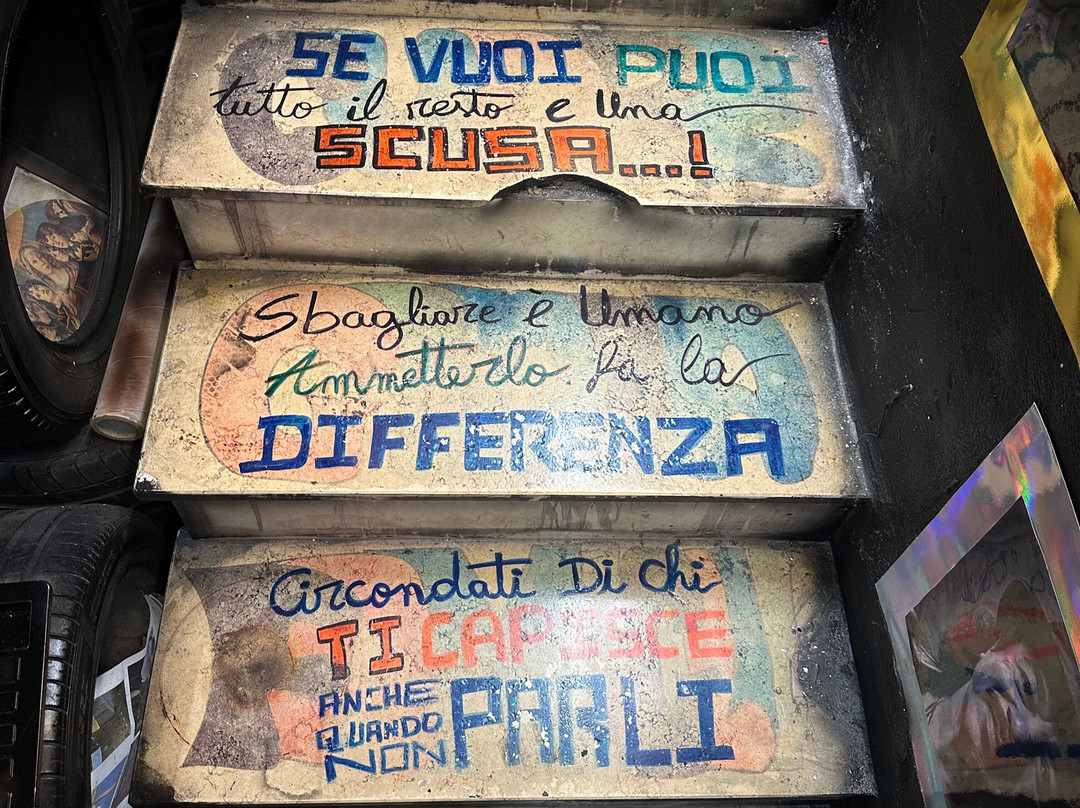 SE VUOI PUOI
tutto il resto e Una
SCUSA...!
Sbagliare è Umano
Ammetterlo fa la
DIFFERENZA
Circondati Di chi
TI CAPISCE
ANCHE
QUANDO
NON PARLI